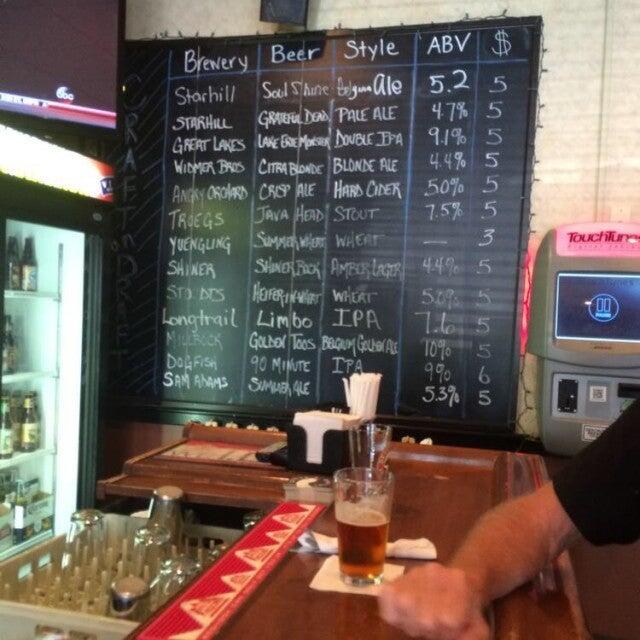 abc
CRAFT n DRAFT
Brewery Beer Style ABV $
Starhill Soul Shine Belgian Ale 5.2 5
STARHILL GRATEFUL DEAD PALE ALE 4.7% 5
GREAT LAKES LAKE ERIE MONSTER DOUBLE IPA 9.1% 5
WIDMER BROS CITRA BLONDE BLONDE ALE 4.4% 5
ANGRY ORCHARD CRISP ALE HARD CIDER 5.0% 5
TROEGS JAVA HEAD STOUT 7.5% 5
YUENGLING SUMMER WHEAT WHEAT — 3
SHINER SHINER BOCK AMBER LAGER 4.4% 5
HEFFER IN WHEAT WHEAT 5.0% 5
Longtrail Limbo IPA 7.6 5
GOLDEN BELGIUM GOLDEN ALE 10% 5
DOGFISH 90 MINUTE IPA 9% 6
SAM ADAMS SUMMER ALE 5.3% 5
TouchTunes